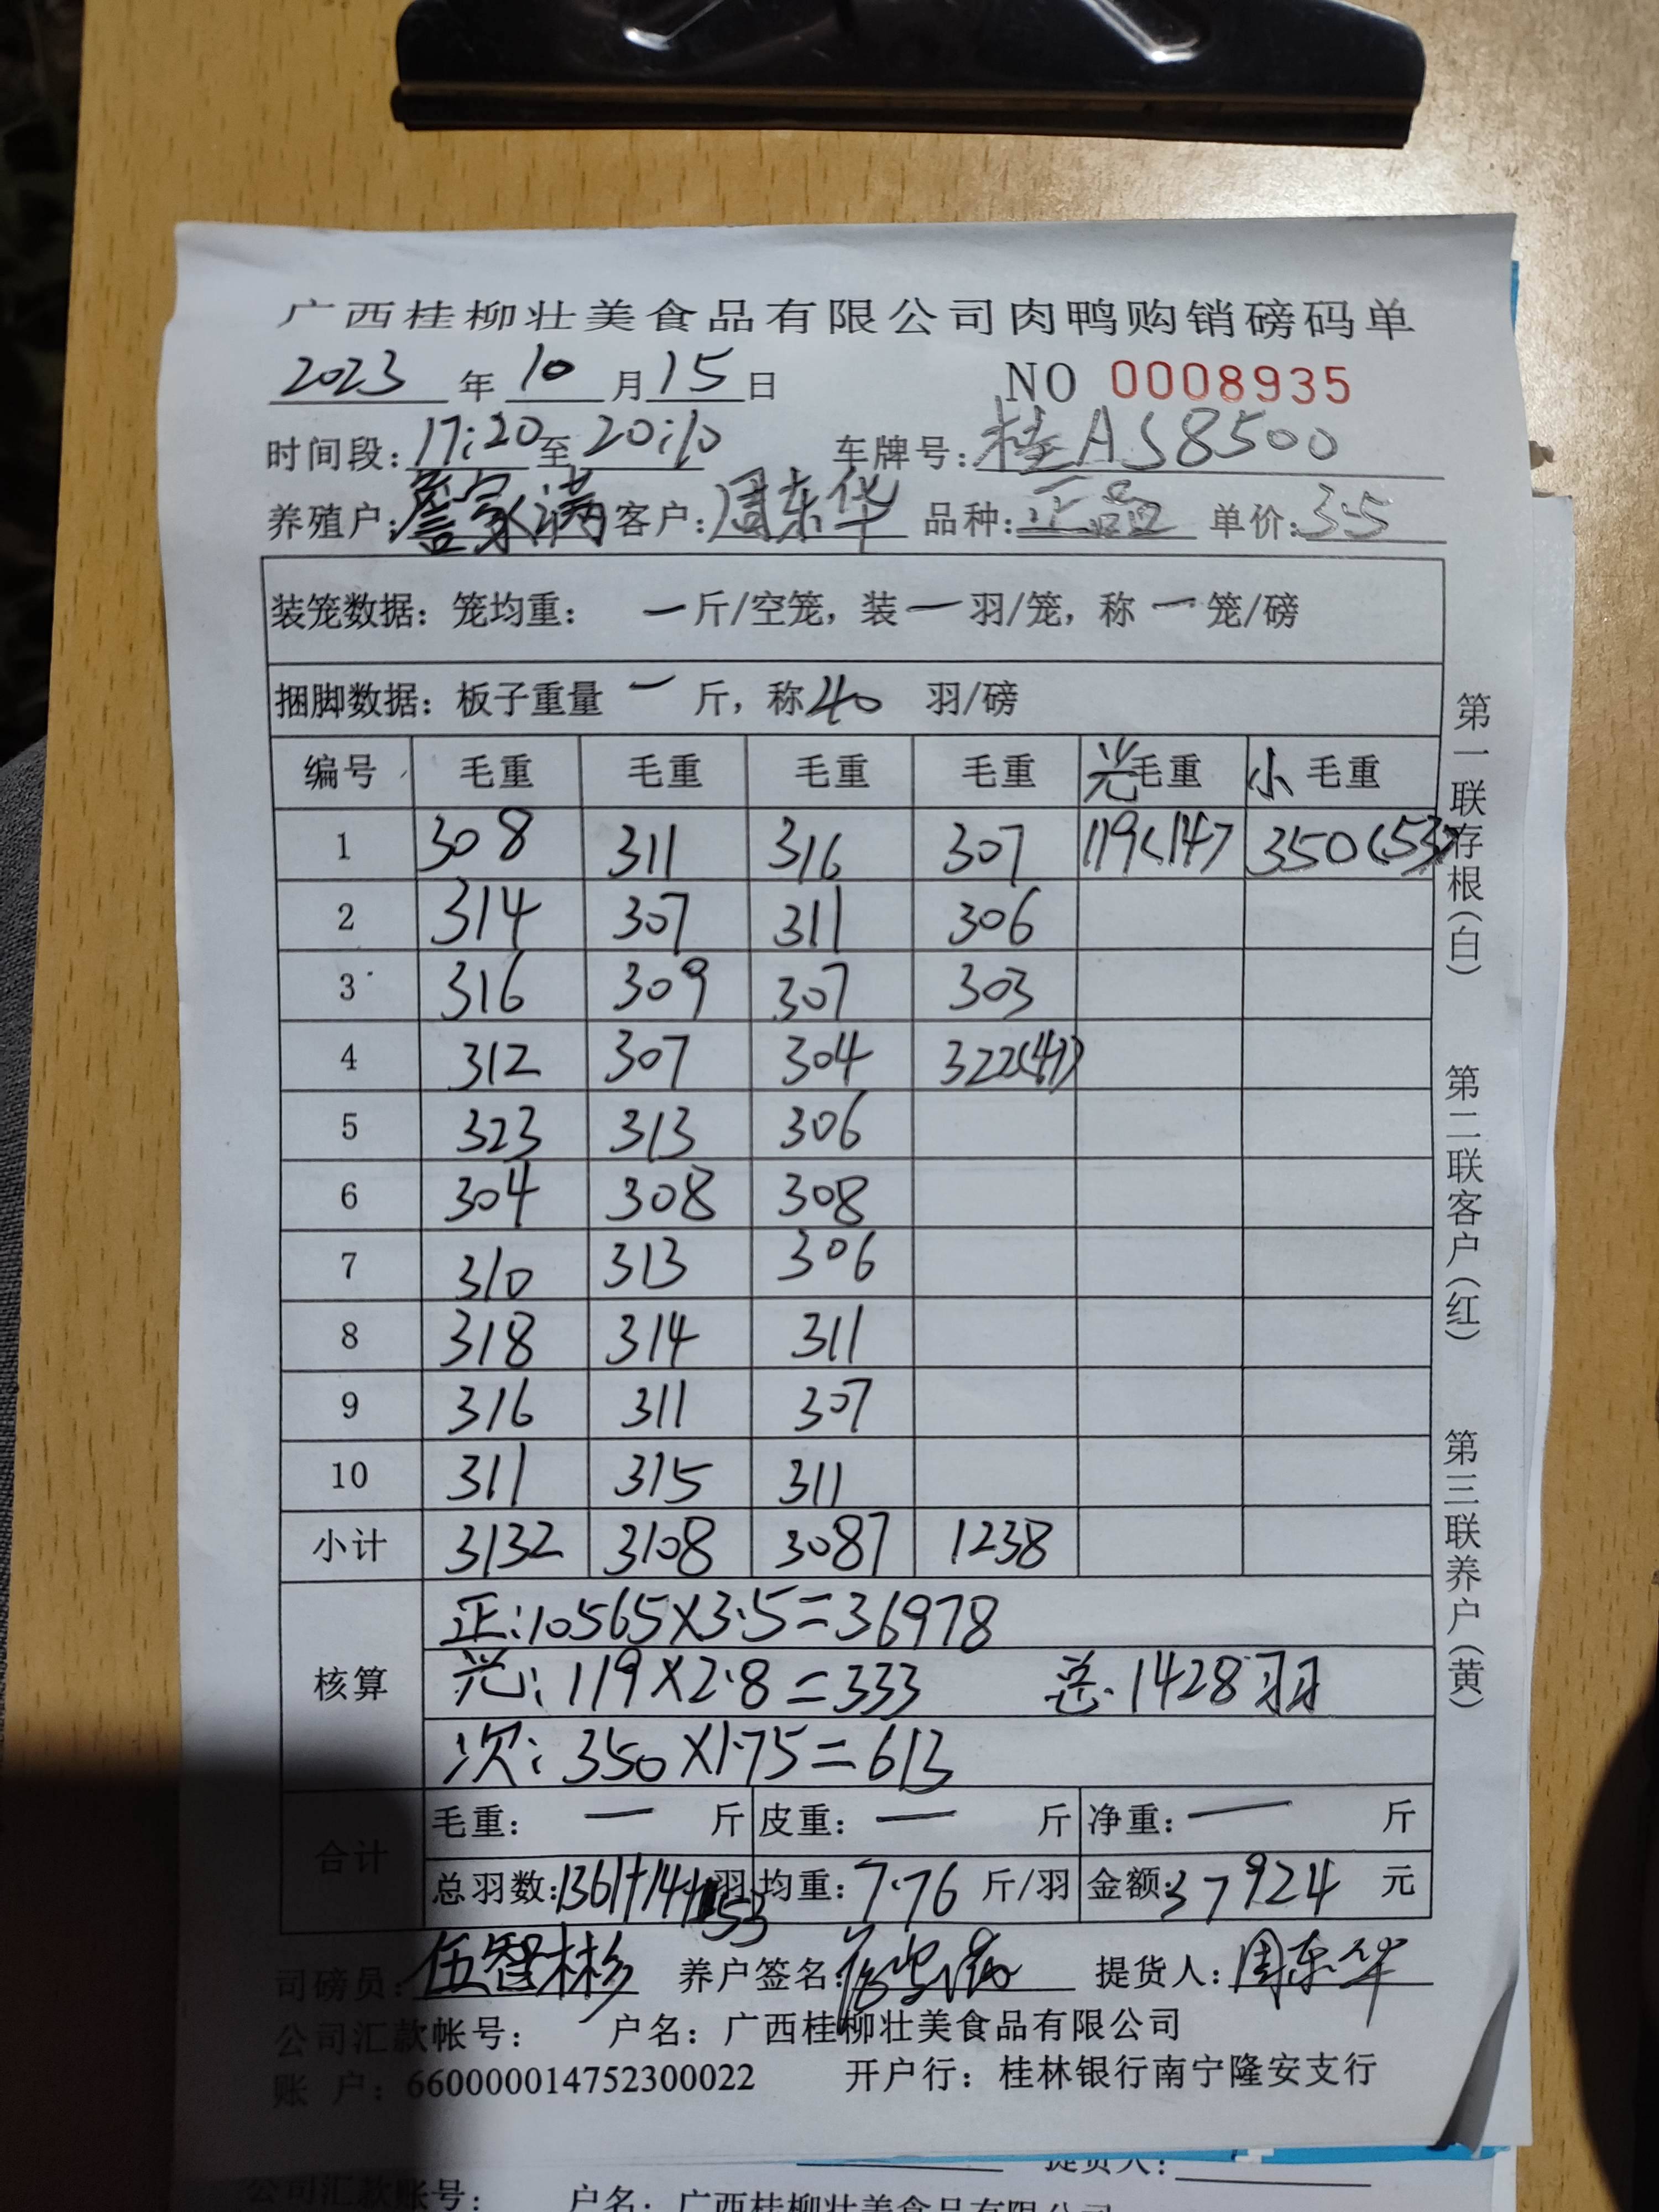 广西桂柳壮美食品有限公司肉鸭购销磅码单
2023 年 10 月 15 日 NO 0008935
时间段: 17:20 至 20:10 车牌号: 桂AS8500
养殖户: 詹家满 客户: 周东华 品种: 正品 单价: 3.5
装笼数据: 笼均重: 一 斤/空笼, 装 一 羽/笼, 称 一 笼/磅
捆脚数据: 板子重量 一 斤, 称 40 羽/磅
编号 毛重 毛重 毛重 毛重 光毛重 小毛重
1 308 311 316 307 119(14) 350(53)
2 314 307 311 306
3 316 309 307 303
4 312 307 304 322(41)
5 323 313 306
6 304 308 308
7 310 313 306
8 318 314 311
9 316 311 307
10 311 315 311
小计 3132 3108 3087 1238
核算 正:10565×3.5=36978
光:119×2.8=333 总.1428羽
次:350×1.75=613
合计 毛重: 一 斤 皮重: 一 斤 净重: 一 斤
总羽数:1361+14+53 羽 均重: 7.76 斤/羽 金额: 37924 元
司磅员: 伍智彬 养户签名: 提货人: 周东华
公司汇款帐号: 户名: 广西桂柳壮美食品有限公司
账 户: 660000014752300022 开户行: 桂林银行南宁隆安支行
第一联存根(白)
第二联客户(红)
第三联养户(黄)
提货人:
公司汇款账号: 户名: 广西桂柳壮美食品有限公司